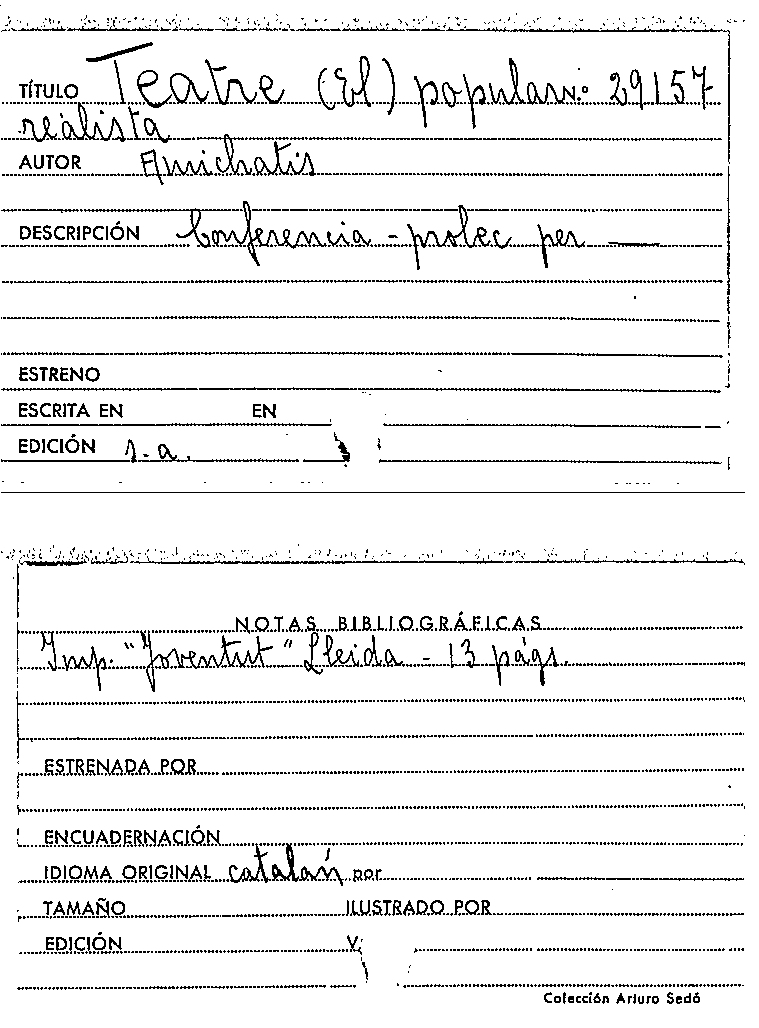 TÍTULO Teatre (El) popular N.º 29157
realista
AUTOR Amichatis
DESCRIPCIÓN Conferencia - prolec per —
ESTRENO
ESCRITA EN EN
EDICIÓN s.a.
NOTAS BIBLIOGRÁFICAS
Imp. "Joventut" Lleida - 13 págs.
ESTRENADA POR
ENCUADERNACIÓN
IDIOMA ORIGINAL catalán por
TAMAÑO ILUSTRADO POR
EDICIÓN
Colección Arturo Sedó